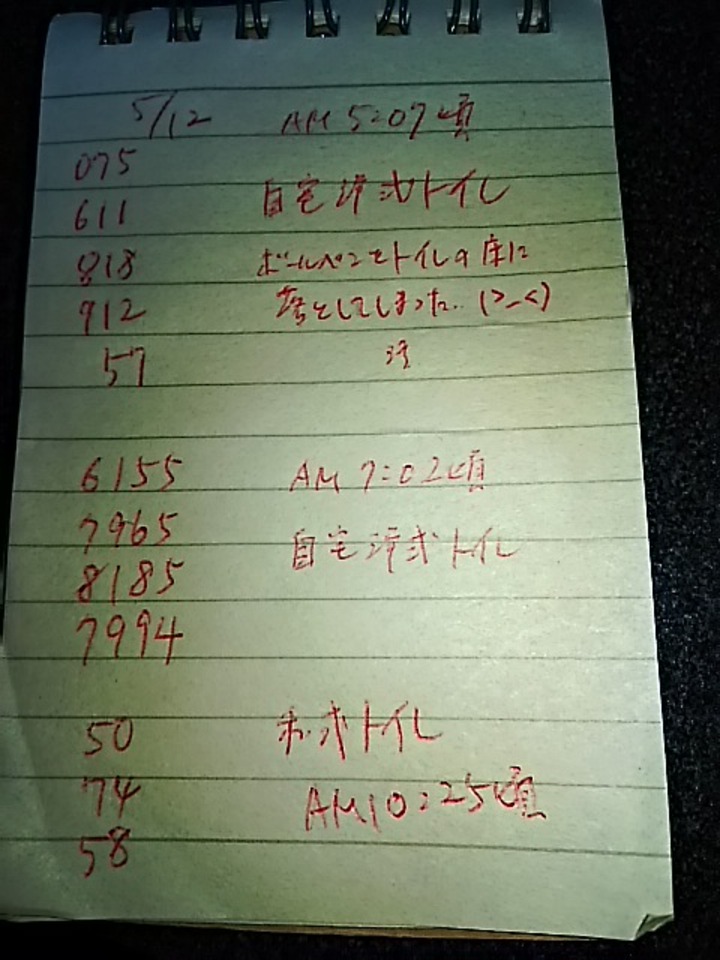 5/12 AM 5:07頃
075
611 自宅洋式トイレ
818 ボールペンをトイレの床に
912 落としてしまった..(>_<)
57 汗
6155 AM 7:02頃
7965 自宅洋式トイレ
8185
7994
50 和式トイレ
74 AM10:25頃
58